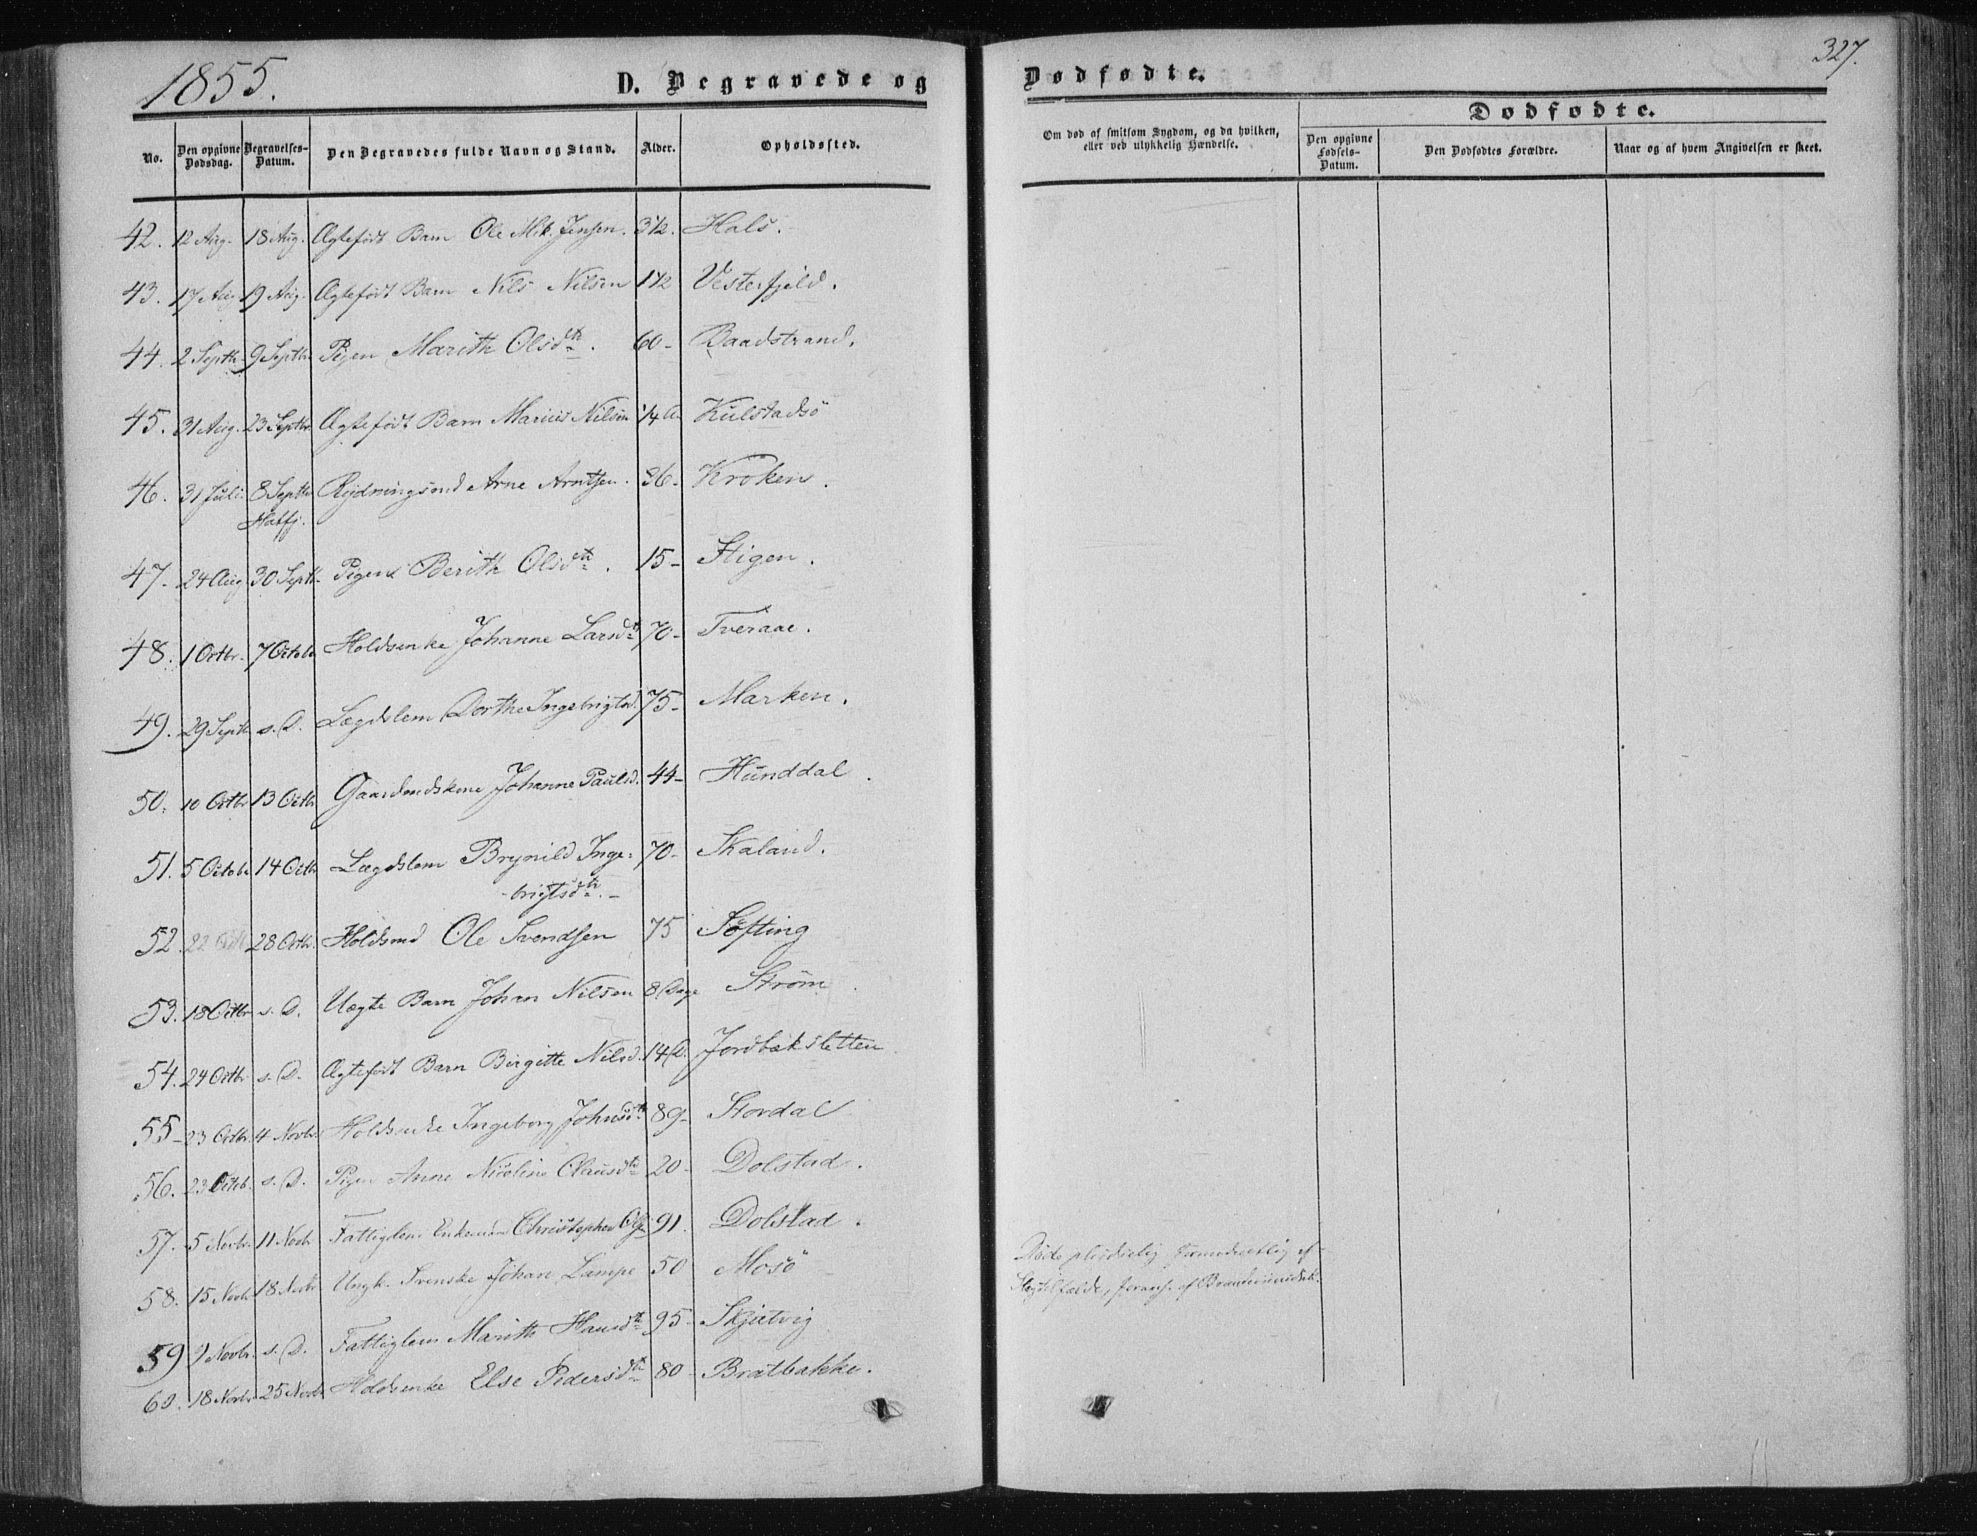 1855.
D. Begravede og
Dødfødte.
327.
No.
Den opgivne Dødsdag.
Begravelses-Datum.
Den Begravedes fulde Navn og Stand.
Alder.
Opholdssted.
Om død af smitsom Sygdom, og da hvilken, eller ved ulykkelig Hændelse.
Dødfødte.
Den opgivne Fødsels-Datum.
Den Dødfødtes Forældre.
Naar og af hvem Angivelsen er skeet.
42. 12 Aug. 18 Aug. Ægtefødt Barn Ole Mik. Jensen. 3 1/2. Hals.
43. 17 Aug 19 Aug. Ægtefødt Barn Nils Nilsen 1 1/2 Vesterfjeld.
44. 2 Septbr 9 Septbr Pigen Marith Olsdtr. 60- Baadstrand.
45. 31 Aug. 23 Septbr Ægtefødt Barn Marius Nilsen 1/4 A Kulstadsö
46. 31 Juli 8 Septbr Rydningsmd Arne Arntsen. 36- Kroken.
Hatfj.
47. 24 Aug 30 Septbr Pigen Berith Olsdtr. 15- Stigen.
48. 1 Octbr. 7 Octobr Holdsenke Johanne Larsdtr 70- Tveraae.
49. 29 Septbr s. D. Lægdslem Dorthe Ingebrigtsd. 75- Marken.
50. 10 Octbr 13 Octbr Gaardmdskone Johanne Paulsd. 44- Hunddal.
51. 5 Octobr 14 Octbr Lægdslem Brynild Inge- 70- Skaland.
brigtsdtr.-
52. 22 Octb 28 Octbr. Holdsmd Ole Svendsen 75 Söfting
53. 18 Octbr s. D. Uægte Barn Johan Nilsen 8 Dage Strøm.
54. 24 Octbr s. D. Ægtefødt Barn Birgitte Nilsd. 14 D. Jordbæksletten
55- 23 Octbr. 4 Novbr Holdsenke Ingeborg Johnsdtr 89- Stordal
56. 23 Octob. s. D. Pigen Anne Nicoline Clausdtr 20- Dolstad.
57. 5 Novbr 11 Novbr Fattiglem Enkemand Christopher Ols. 91. Dolstad.
58. 15 Novbr 18 Novbr Ungk. Svenske Johan Lampe 50 Mosö
Døde pludselig formodentlig af
Slagtilfælde, foraars. af Brændeviinsdrik.
59 9 Novbr. s. D. Fattiglem Marith Hansdtr 95- Skjetvig
60. 18 Novbr 25 Novbr Holdsenke Else Pedersdtr 80- Bratbakke.